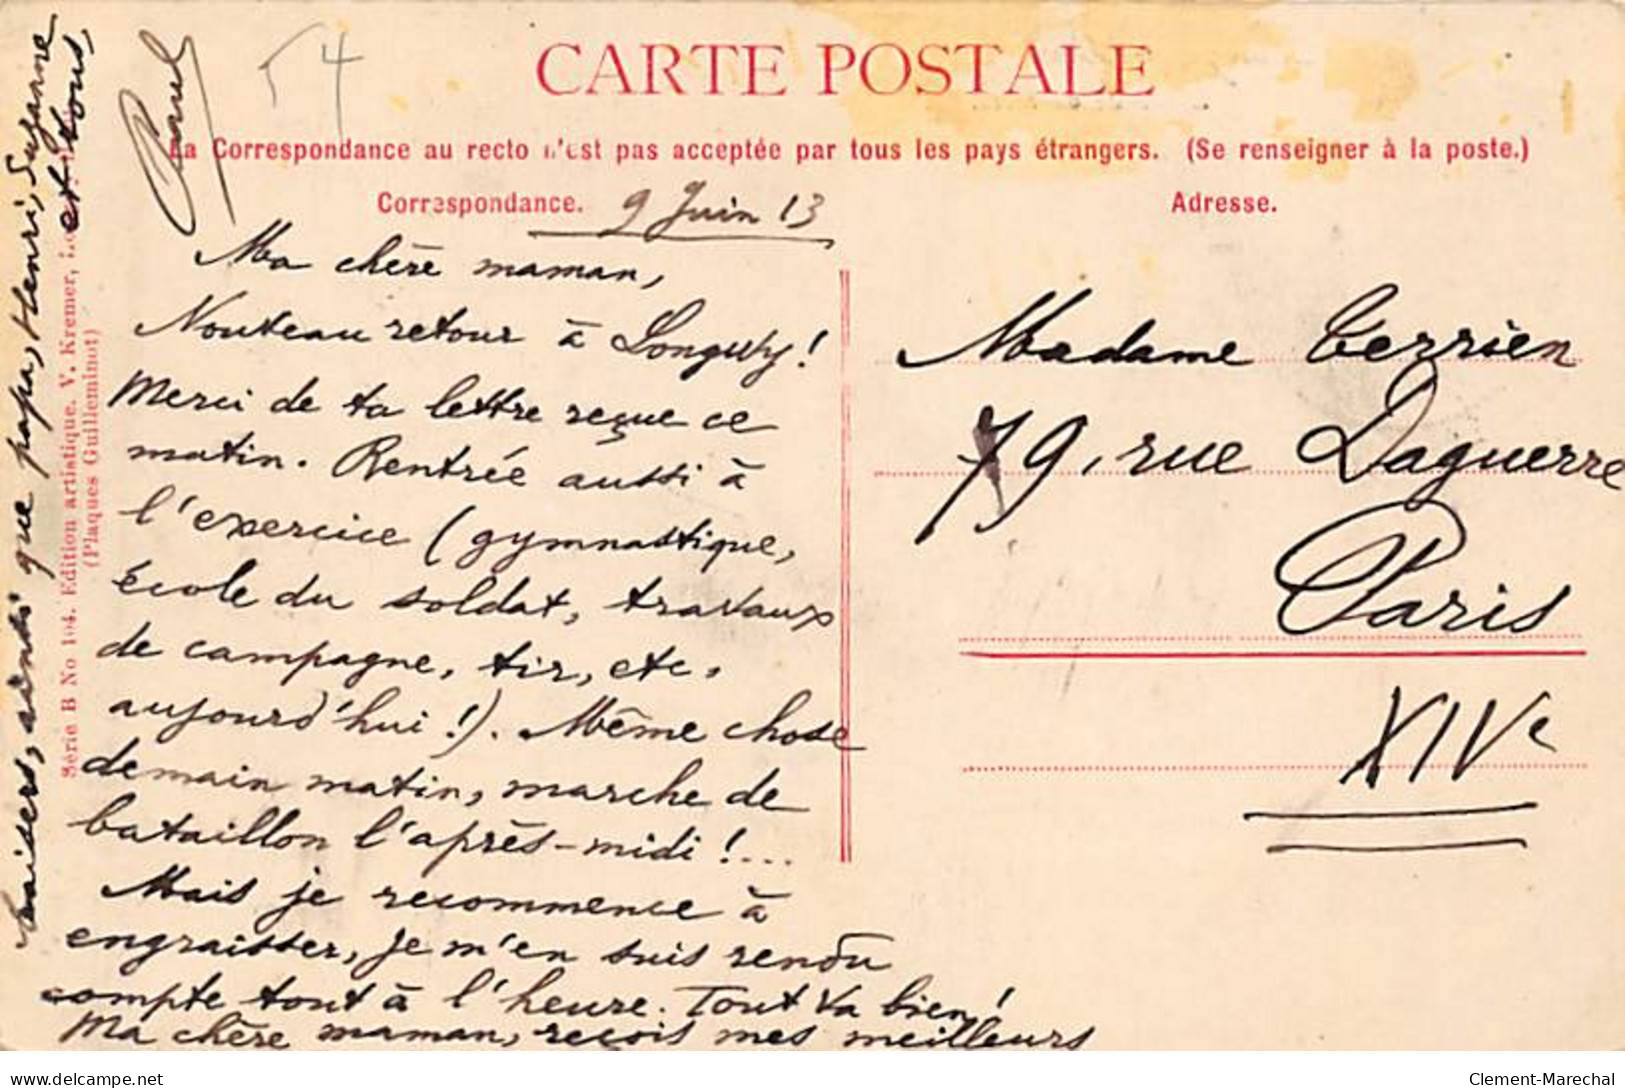 CARTE POSTALE
La Correspondance au recto n'est pas acceptée par tous les pays étrangers. (Se renseigner à la poste.)
Correspondance.
Adresse.
54
9 Juin 13
Ma chère maman,
Nouveau retour à Longwy!
Merci de ta lettre reçue ce
matin. Rentrée aussi à
l'exercice (gymnastique,
école du soldat, travaux
de campagne, tir, etc,
aujourd'hui!). Même chose
demain matin, marche de
bataillon l'après-midi!...
Mais je recommence à
engraisser, je m'en suis rendu
compte tout à l'heure. Tout va bien!
Ma chère maman, reçois mes meilleurs
baisers, ainsi que papa, Henri, Suzanne
et tous,
Paul
Madame Terrien
79, rue Daguerre
Paris
XIVe
Série B No 104. Edition artistique. V. Kremer,
(Plaques Guilleminot)
Clement-Marechal